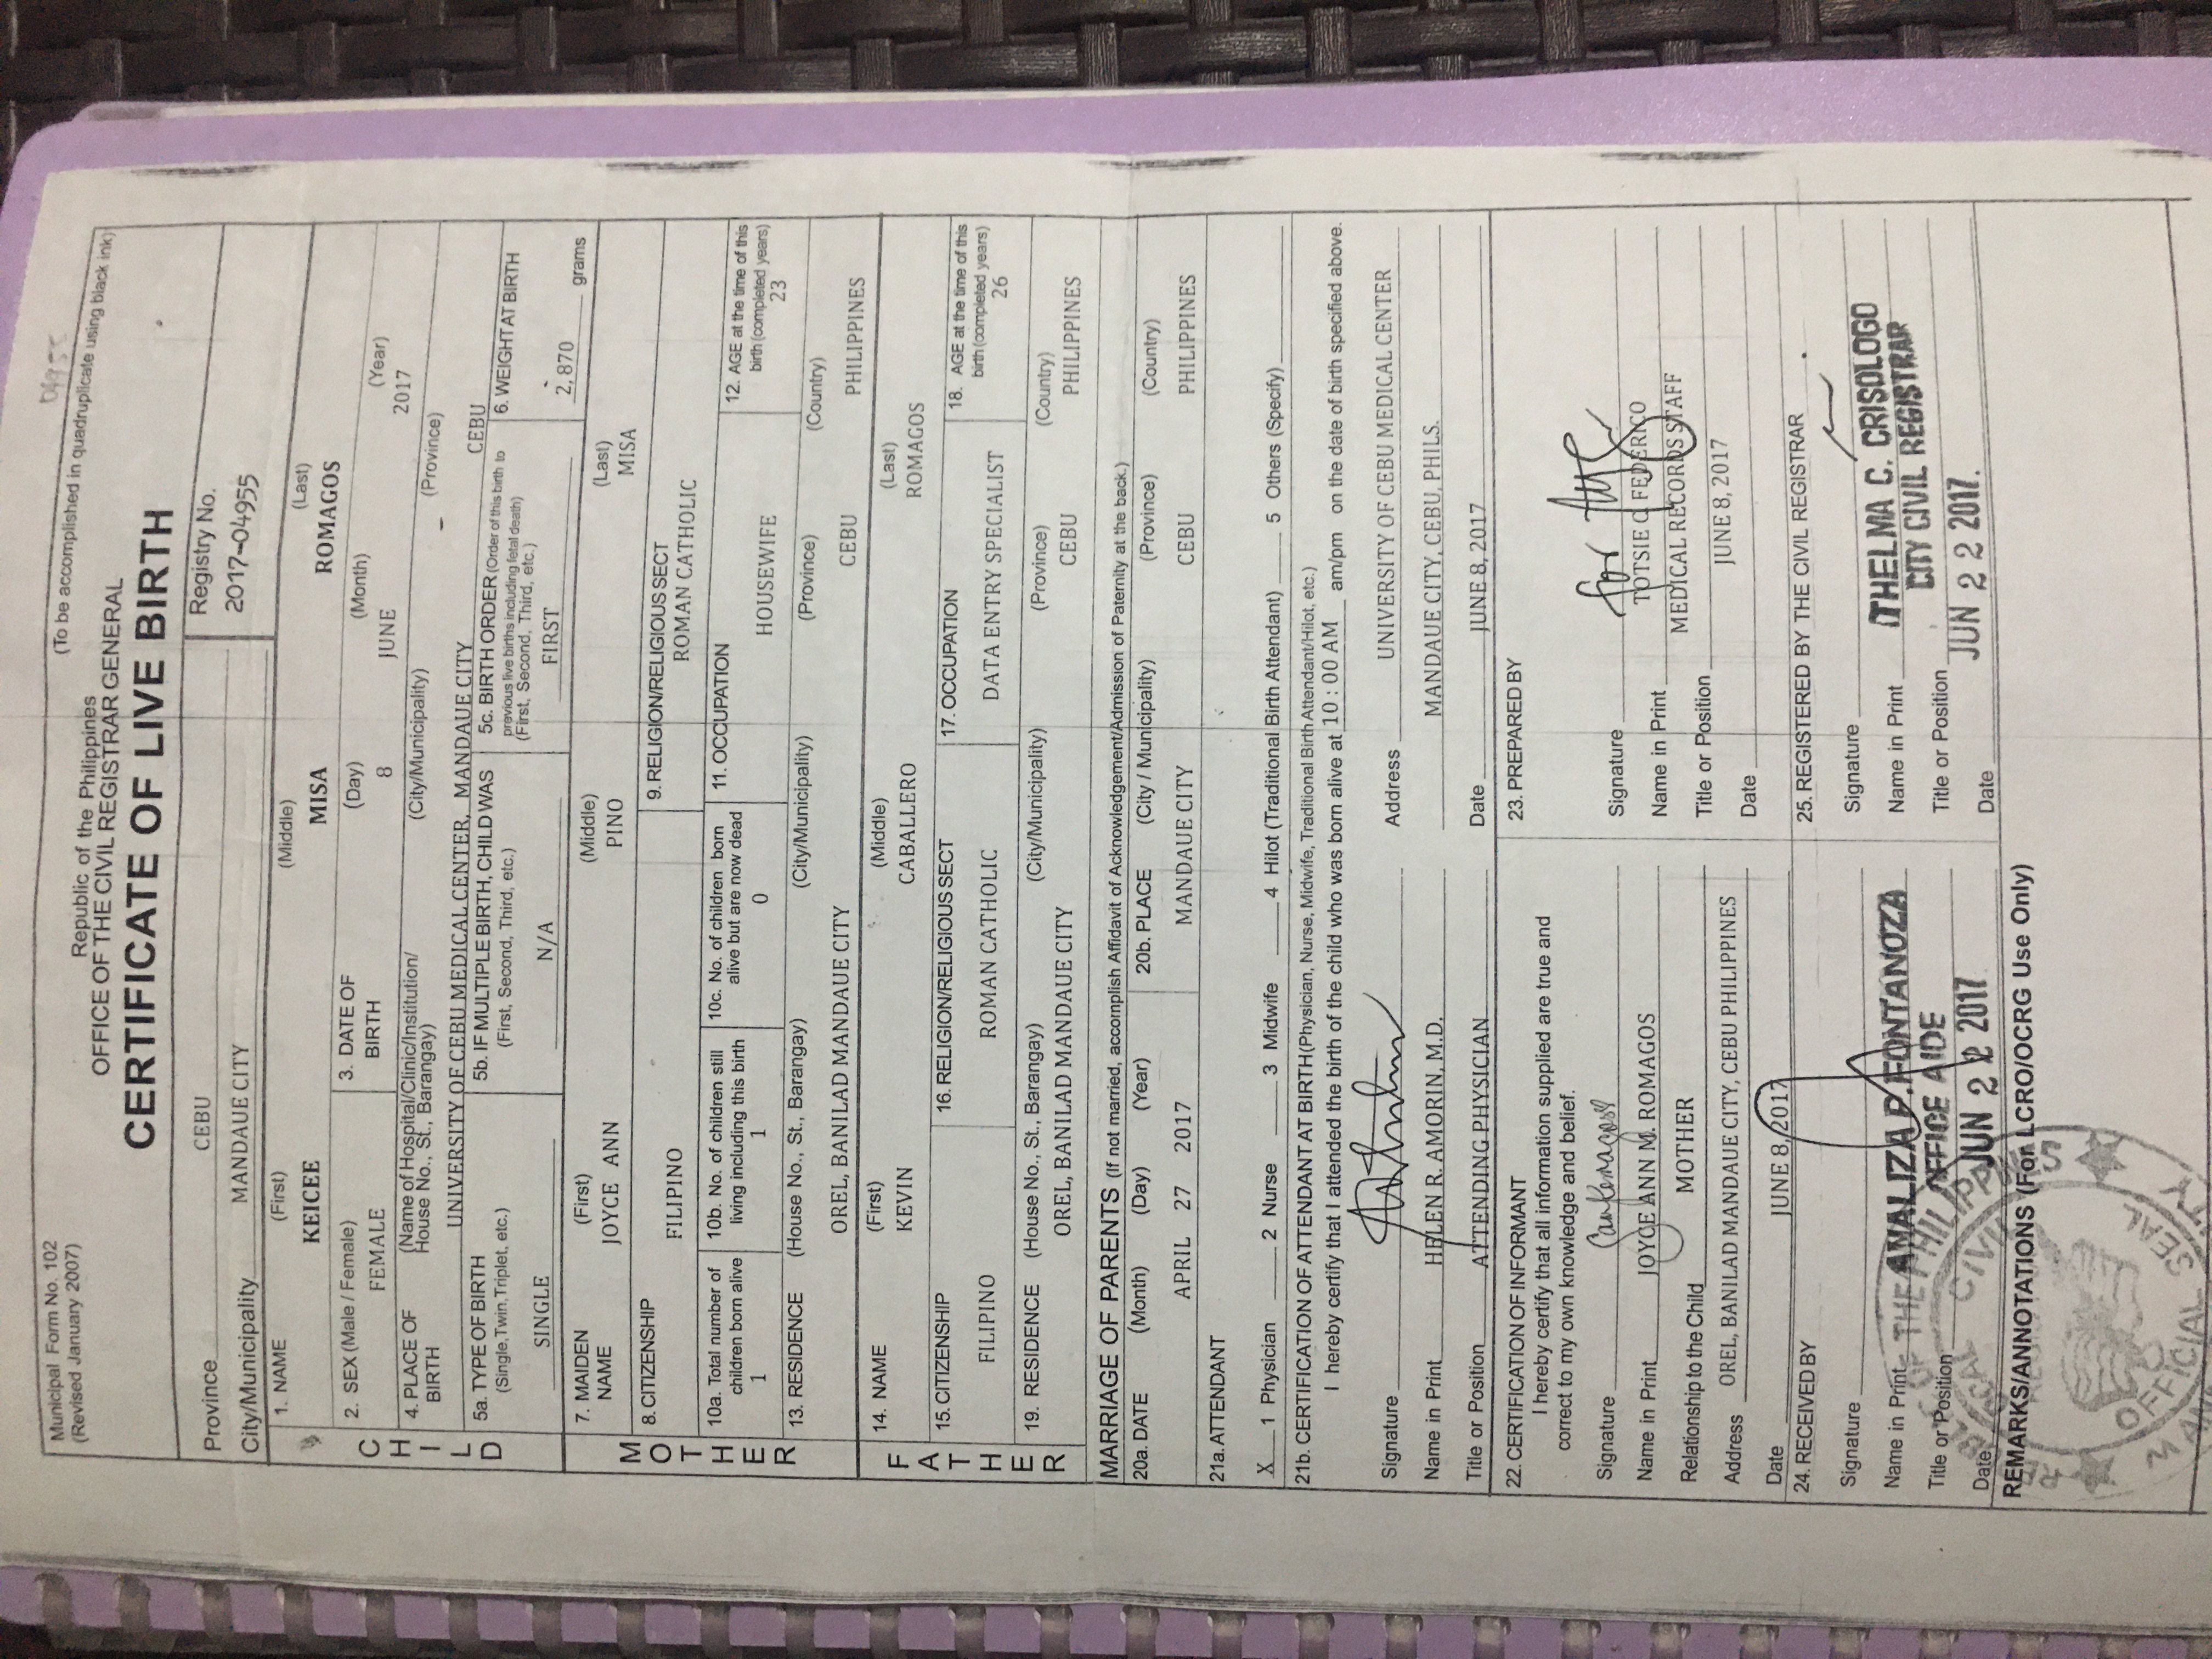 Municipal Form No. 102
(Revised January 2007)
(To be accomplished in quadruplicate using black ink)
Republic of the Philippines
OFFICE OF THE CIVIL REGISTRAR GENERAL
CERTIFICATE OF LIVE BIRTH
Province CEBU
City/Municipality MANDAUE CITY
Registry No.
2017-04955
CHILD
1. NAME (First) (Middle) (Last)
KEICEE MISA ROMAGOS
2. SEX (Male / Female) 3. DATE OF BIRTH (Day) (Month) (Year)
FEMALE 8 JUNE 2017
4. PLACE OF BIRTH (Name of Hospital/Clinic/Institution/ House No., St., Barangay) (City/Municipality) (Province)
UNIVERSITY OF CEBU MEDICAL CENTER, MANDAUE CITY CEBU
5a. TYPE OF BIRTH (Single, Twin, Triplet, etc.)
SINGLE
5b. IF MULTIPLE BIRTH, CHILD WAS (First, Second, Third, etc.)
N/A
5c. BIRTH ORDER (Order of this birth to previous live births including fetal death) (First, Second, Third, etc.)
FIRST
6. WEIGHT AT BIRTH
2,870 grams
MOTHER
7. MAIDEN NAME (First) (Middle) (Last)
JOYCE ANN PINO MISA
8. CITIZENSHIP 9. RELIGION/RELIGIOUS SECT
FILIPINO ROMAN CATHOLIC
10a. Total number of children born alive
1
10b. No. of children still living including this birth
1
10c. No. of children born alive but are now dead
0
11. OCCUPATION
HOUSEWIFE
12. AGE at the time of this birth (completed years)
23
13. RESIDENCE (House No., St., Barangay) (City/Municipality) (Province) (Country)
OREL, BANILAD MANDAUE CITY CEBU PHILIPPINES
FATHER
14. NAME (First) (Middle) (Last)
KEVIN CABALLERO ROMAGOS
15. CITIZENSHIP 16. RELIGION/RELIGIOUS SECT 17. OCCUPATION 18. AGE at the time of this birth (completed years)
FILIPINO ROMAN CATHOLIC DATA ENTRY SPECIALIST 26
19. RESIDENCE (House No., St., Barangay) (City/Municipality) (Province) (Country)
OREL, BANILAD MANDAUE CITY CEBU PHILIPPINES
MARRIAGE OF PARENTS (If not married, accomplish Affidavit of Acknowledgement/Admission of Paternity at the back.)
20a. DATE (Month) (Day) (Year) 20b. PLACE (City / Municipality) (Province) (Country)
APRIL 27 2017 MANDAUE CITY CEBU PHILIPPINES
21a. ATTENDANT
X 1 Physician 2 Nurse 3 Midwife 4 Hilot (Traditional Birth Attendant) 5 Others (Specify)
21b. CERTIFICATION OF ATTENDANT AT BIRTH (Physician, Nurse, Midwife, Traditional Birth Attendant/Hilot, etc.)
I hereby certify that I attended the birth of the child who was born alive at 10 : 00 AM am/pm on the date of birth specified above.
Signature
Name in Print HELEN R. AMORIN, M.D.
Title or Position ATTENDING PHYSICIAN
Address UNIVERSITY OF CEBU MEDICAL CENTER
MANDAUE CITY, CEBU, PHILS.
Date JUNE 8, 2017
22. CERTIFICATION OF INFORMANT
I hereby certify that all information supplied are true and
correct to my own knowledge and belief.
Signature
Name in Print JOYCE ANN M. ROMAGOS
Relationship to the Child MOTHER
Address OREL, BANILAD MANDAUE CITY, CEBU PHILIPPINES
Date JUNE 8, 2017
23. PREPARED BY
for
Signature
Name in Print TOTSIE C. FEDERICO
Title or Position MEDICAL RECORDS STAFF
Date JUNE 8, 2017
24. RECEIVED BY
Signature
Name in Print AMALIZA P. FONTANOZA
Title or Position OFFICE AIDE
Date JUN 22 2017
25. REGISTERED BY THE CIVIL REGISTRAR
Signature
Name in Print THELMA C. CRISOLOGO
Title or Position CITY CIVIL REGISTRAR
Date JUN 22 2017.
REMARKS/ANNOTATIONS (For LCRO/OCRG Use Only)
OF THE PHILIPPINES
CIVIL
OFFICIAL SEAL